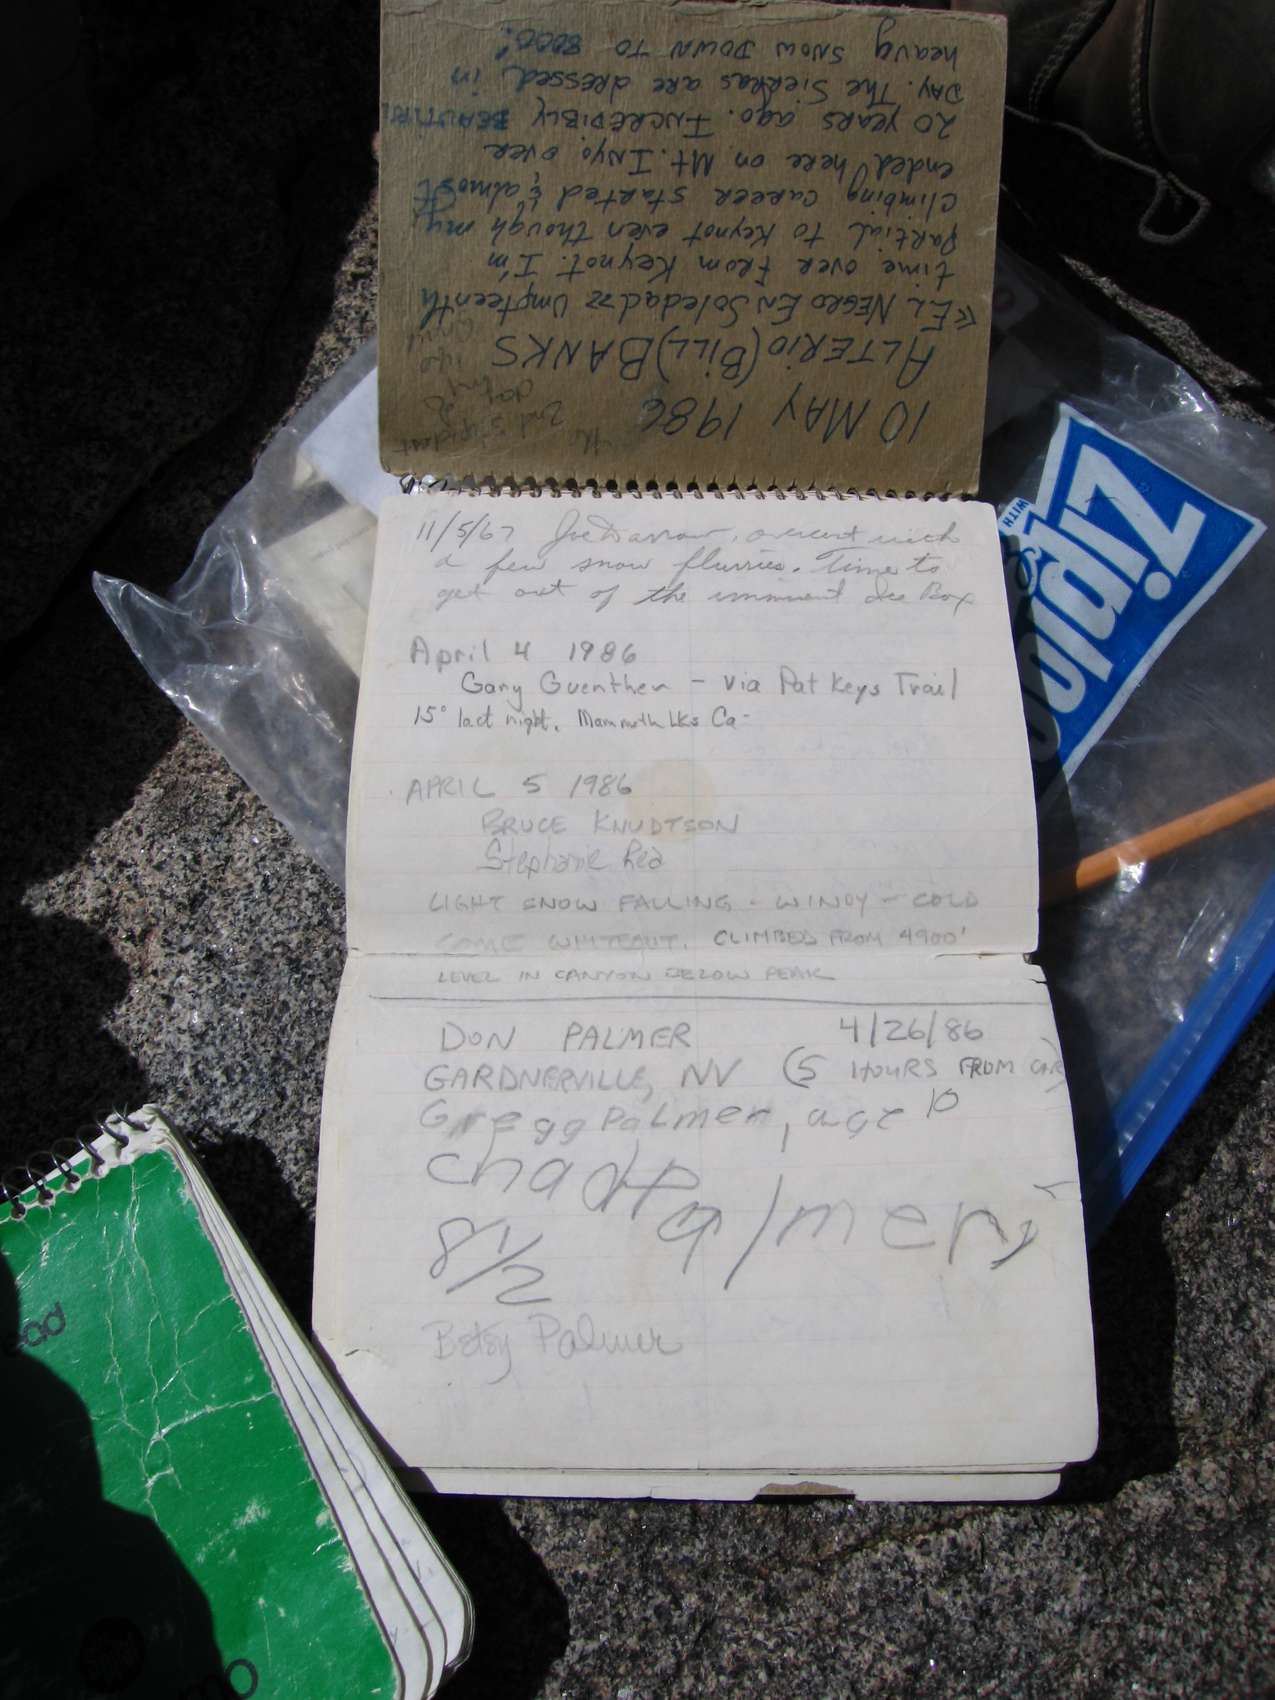 10 MAY 1986
ALTERIO (BILL) BANKS
«EL NEGRO EN SOLEDAD» Umpteenth
time over from Keynot. I'm
partial to Keynot even though my
climbing career started & almost
ended here on Mt. Inyo over
20 years ago. INCREDIBLY BEAUTIFUL
DAY. The Sierras are dressed in
heavy SNOW DOWN TO 8000'.
2nd stupidest
11/5/67 Joe Darrow, overcast with
a few snow flurries. Time to
get out of the imminent Ice Box
April 4 1986
Gary Guenther - via Pat Keys Trail
15° last night. Mammoth Lks Ca-
APRIL 5 1986
BRUCE KNUDTSON
Stephanie Red
LIGHT SNOW FALLING - WINDY - COLD
SOME WHITEOUT. CLIMBED FROM 4900'
LEVEL IN CANYON BELOW PEAK
DON PALMER 4/26/86
GARDNERVILLE, NV (5 HOURS FROM CAR)
Gregg Palmer, age 10
Chad Palmer,
8 1/2
Betsy Palmer
Ziploc
WITH